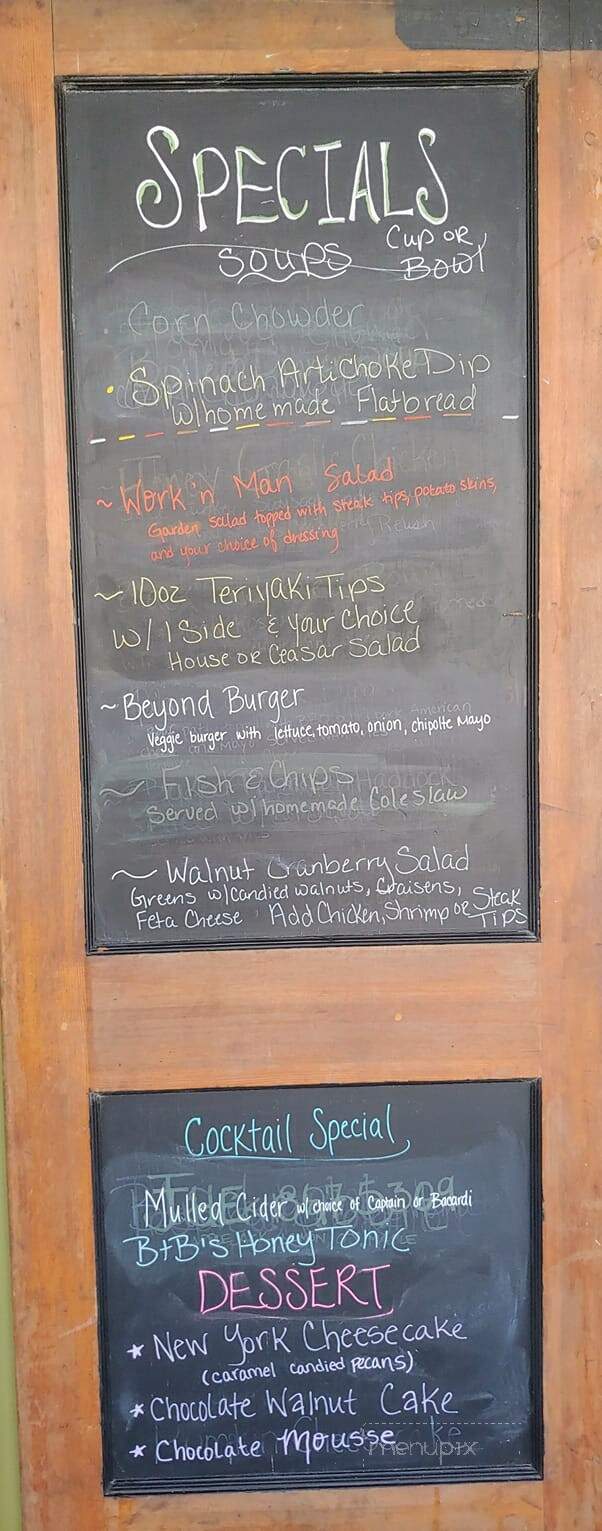 SPECIALS
SOUPS Cup OR Bowl
Corn Chowder
· Spinach Artichoke Dip
w/homemade Flatbread
~ Work'n Man Salad
Garden salad topped with steak tips, potato skins,
and your choice of dressing
~ 10oz Teriyaki Tips
w/ 1 Side & your choice
House or Ceasar Salad
~ Beyond Burger
Veggie burger with lettuce, tomato, onion, chipolte Mayo
~ Fish & Chips
Served w/ homemade Coleslaw
~ Walnut Cranberry Salad
Greens w/candied walnuts, Craisens,
Feta Cheese Add Chicken, Shrimp or Steak Tips
Cocktail Special
Mulled Cider w/ choice of Captain or Bacardi
B+B's Honey Tonic
DESSERT
* New York Cheesecake
(caramel candied pecans)
* Chocolate Walnut Cake
* Chocolate Mousse
menupix